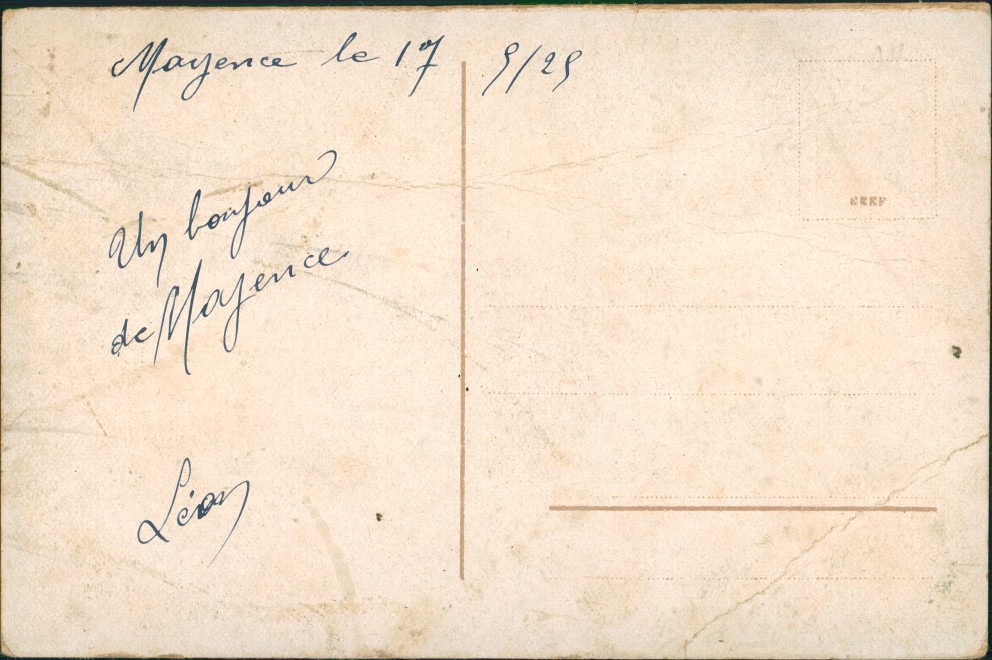 Mayence le 17 5/25
Un bonjour
de Mayence
Léon